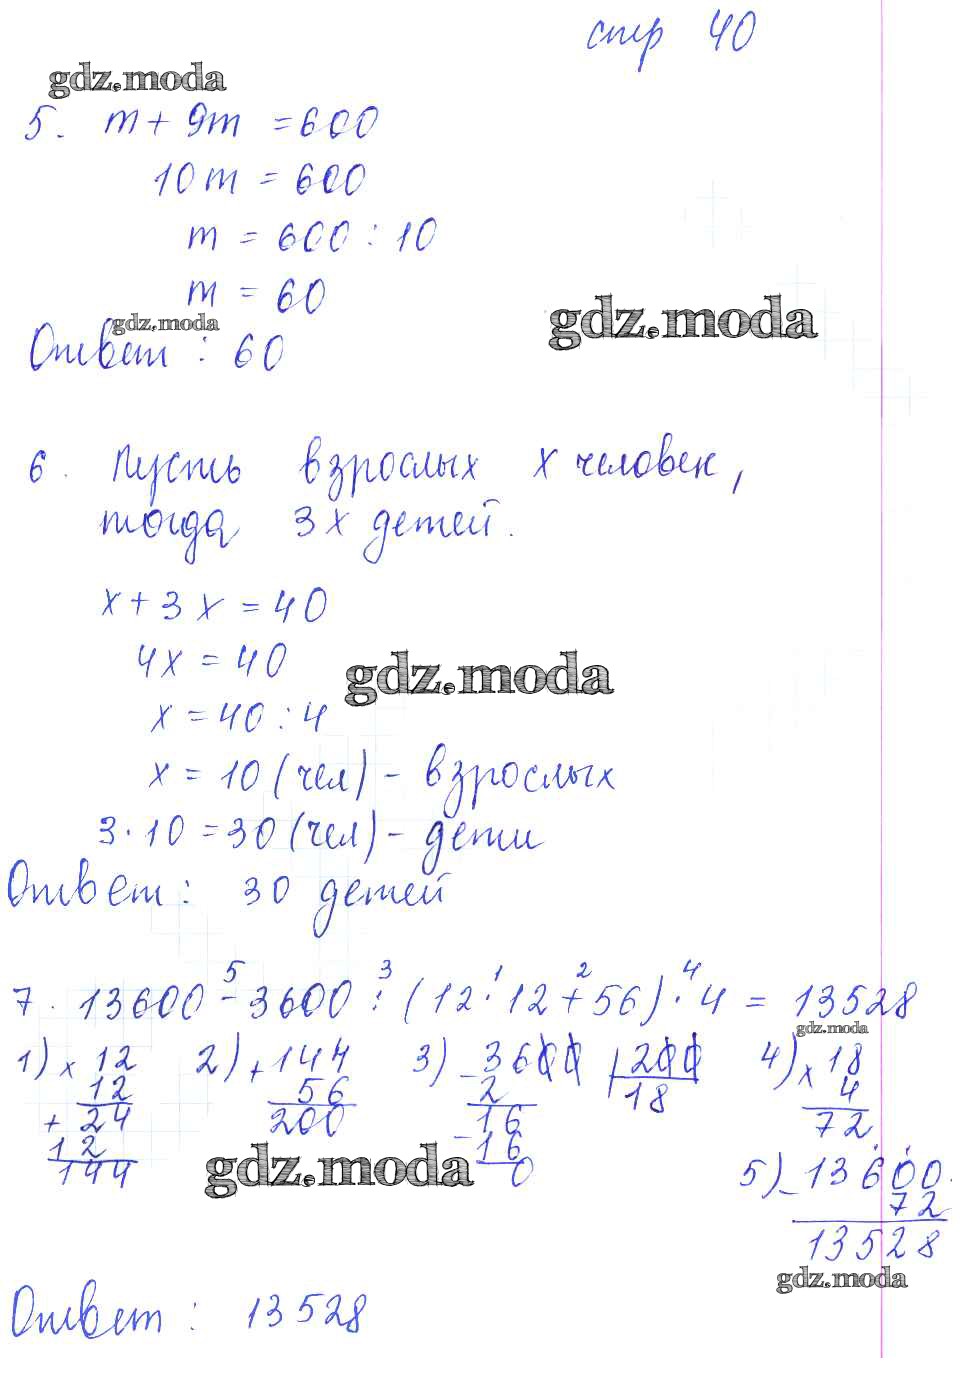 стр 40
gdz.moda
5. m + 9m = 600
10m = 600
m = 600 : 10
m = 60
gdz.moda
gdz.moda
Ответ : 60
6. Пусть взрослых x человек,
тогда 3x детей.
x + 3x = 40
4x = 40
gdz.moda
x = 40 : 4
x = 10 (чел) - взрослых
3 · 10 = 30 (чел) - дети
Ответ : 30 детей
5 3 1 2 4
7. 13600 - 3600 : (12 · 12 + 56) · 4 = 13528
gdz.moda
1) x 12
12
+ 24
12
144
2) + 144
56
200
3) - 3600 200
2 18
16
- 16
0
4) x 18
4
72
gdz.moda
5) - 13600
72
13528
gdz.moda
Ответ : 13528